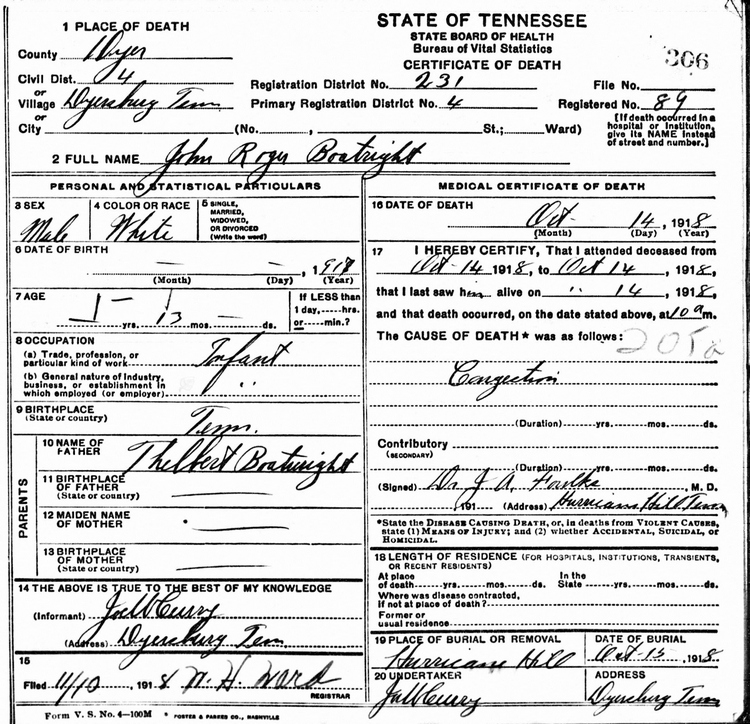 STATE OF TENNESSEE
STATE BOARD OF HEALTH
Bureau of Vital Statistics
CERTIFICATE OF DEATH
306
1 PLACE OF DEATH
County Dyer
Civil Dist. 4
or
Village Dyersburg Tenn
or
City (No. , St.; Ward)
Registration District No. 231 File No.
Primary Registration District No. 4 Registered No. 89
[If death occurred in a
hospital or institution,
give its NAME instead
of street and number.]
2 FULL NAME John Roger Boatright
PERSONAL AND STATISTICAL PARTICULARS
3 SEX
Male
4 COLOR OR RACE
White
5 SINGLE,
MARRIED,
WIDOWED,
OR DIVORCED
(Write the word)
6 DATE OF BIRTH
— — , 1917
(Month) (Day) (Year)
7 AGE
1 yrs. 13 mos. — ds.
If LESS than
1 day, hrs.
or min.?
8 OCCUPATION
(a) Trade, profession, or
particular kind of work Infant
(b) General nature of industry,
business, or establishment in
which employed (or employer) "
9 BIRTHPLACE
(State or country) Tenn.
PARENTS
10 NAME OF
FATHER Thelbert Boatright
11 BIRTHPLACE
OF FATHER
(State or country)
12 MAIDEN NAME
OF MOTHER
13 BIRTHPLACE
OF MOTHER
(State or country)
14 THE ABOVE IS TRUE TO THE BEST OF MY KNOWLEDGE
(Informant) Curry
(Address) Dyersburg Tenn
15
Filed 11/10 1918 W. H. Ward
REGISTRAR
Form V. S. No. 4—100M
FOSTER & PARKES CO., NASHVILLE
MEDICAL CERTIFICATE OF DEATH
16 DATE OF DEATH
Oct 14, 1918
(Month) (Day) (Year)
17 I HEREBY CERTIFY, That I attended deceased from
Oct 14 1918, to Oct 14, 1918,
that I last saw him alive on " 14, 1918,
and that death occurred, on the date stated above, at 10 a m.
The CAUSE OF DEATH * was as follows:
205a
Congection
(Duration) yrs. mos. ds.
Contributory
(SECONDARY)
(Duration) yrs. mos. ds.
(Signed) Dr J. A. , M. D.
191 (Address) Hurricane Hill Tenn
*State the DISEASE CAUSING DEATH, or, in deaths from VIOLENT CAUSES,
state (1) MEANS OF INJURY; and (2) whether ACCIDENTAL, SUICIDAL, or
HOMICIDAL.
18 LENGTH OF RESIDENCE (FOR HOSPITALS, INSTITUTIONS, TRANSIENTS,
OR RECENT RESIDENTS)
At place
of death yrs. mos. ds.
In the
State yrs. mos. ds.
Where was disease contracted,
if not at place of death?
Former or
usual residence
19 PLACE OF BURIAL OR REMOVAL
Hurricane Hill
DATE OF BURIAL
Oct 15, 1918
20 UNDERTAKER
Curry
ADDRESS
Dyersburg Tenn